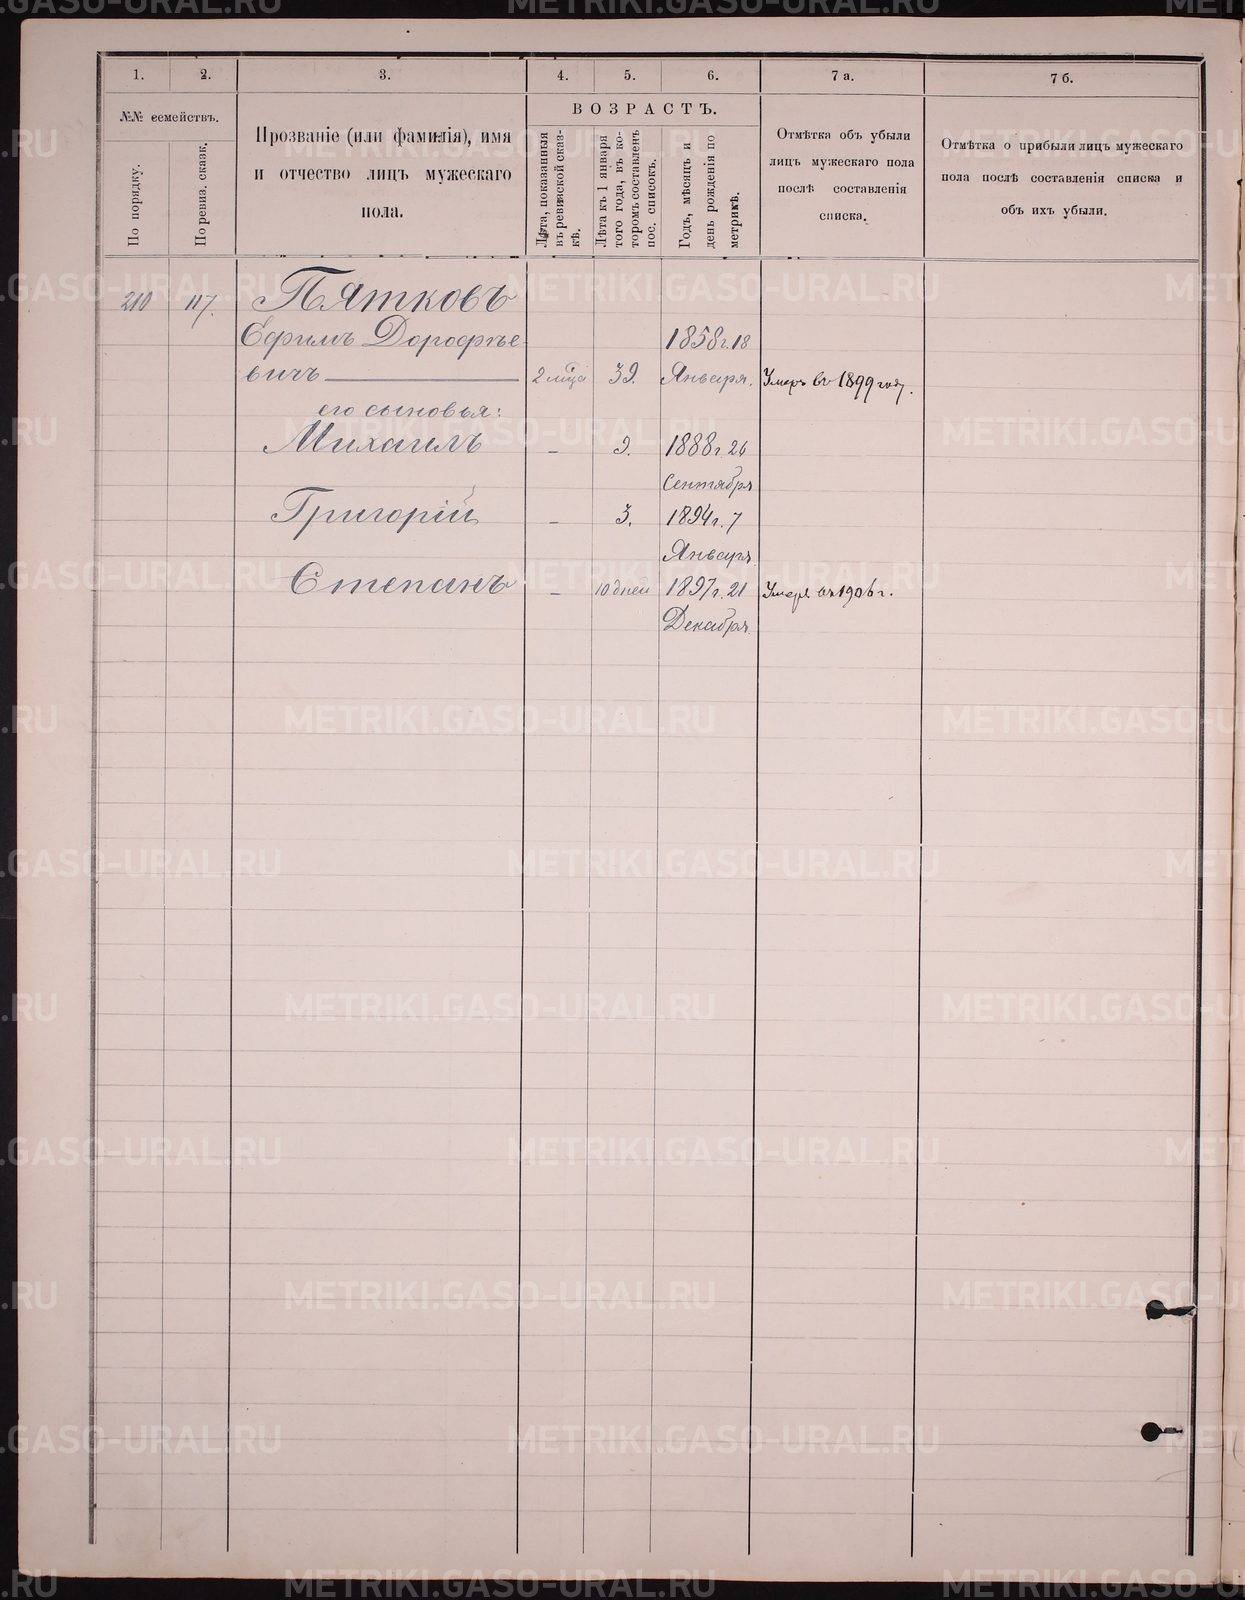 1.
2.
3.
4.
5.
6.
7 а.
7 б.
№№ семействъ.
По порядку.
По ревиз. сказк.
Прозваніе (или фамилія), имя
и отчество лицъ мужескаго
пола.
ВОЗРАСТЪ.
Лѣта, показанныя
въ ревизской сказ-
кѣ.
Лѣта къ 1 января
того года, въ ко-
торомъ составленъ
пос. списокъ.
Годъ, мѣсяцъ и
день рожденія по
метрикѣ.
Отмѣтка объ убыли
лицъ мужескаго пола
послѣ составленія
списка.
Отмѣтка о прибыли лицъ мужескаго
пола послѣ составленія списка и
объ ихъ убыли.
210 117. Пятковъ
Ефимъ Дорофѣе 1858 г. 18
вичъ 2 мѣца 39. Января. Умеръ въ 1899 году.
его сыновья:
Михаилъ - 9. 1888 г. 26
Сентября
Григорій - 3. 1894 г. 7
Января
Степанъ - 10 дней 1897 г. 21 Умеръ въ 1906 г.
Декабря.
METRIKI.GASO-URAL.RU